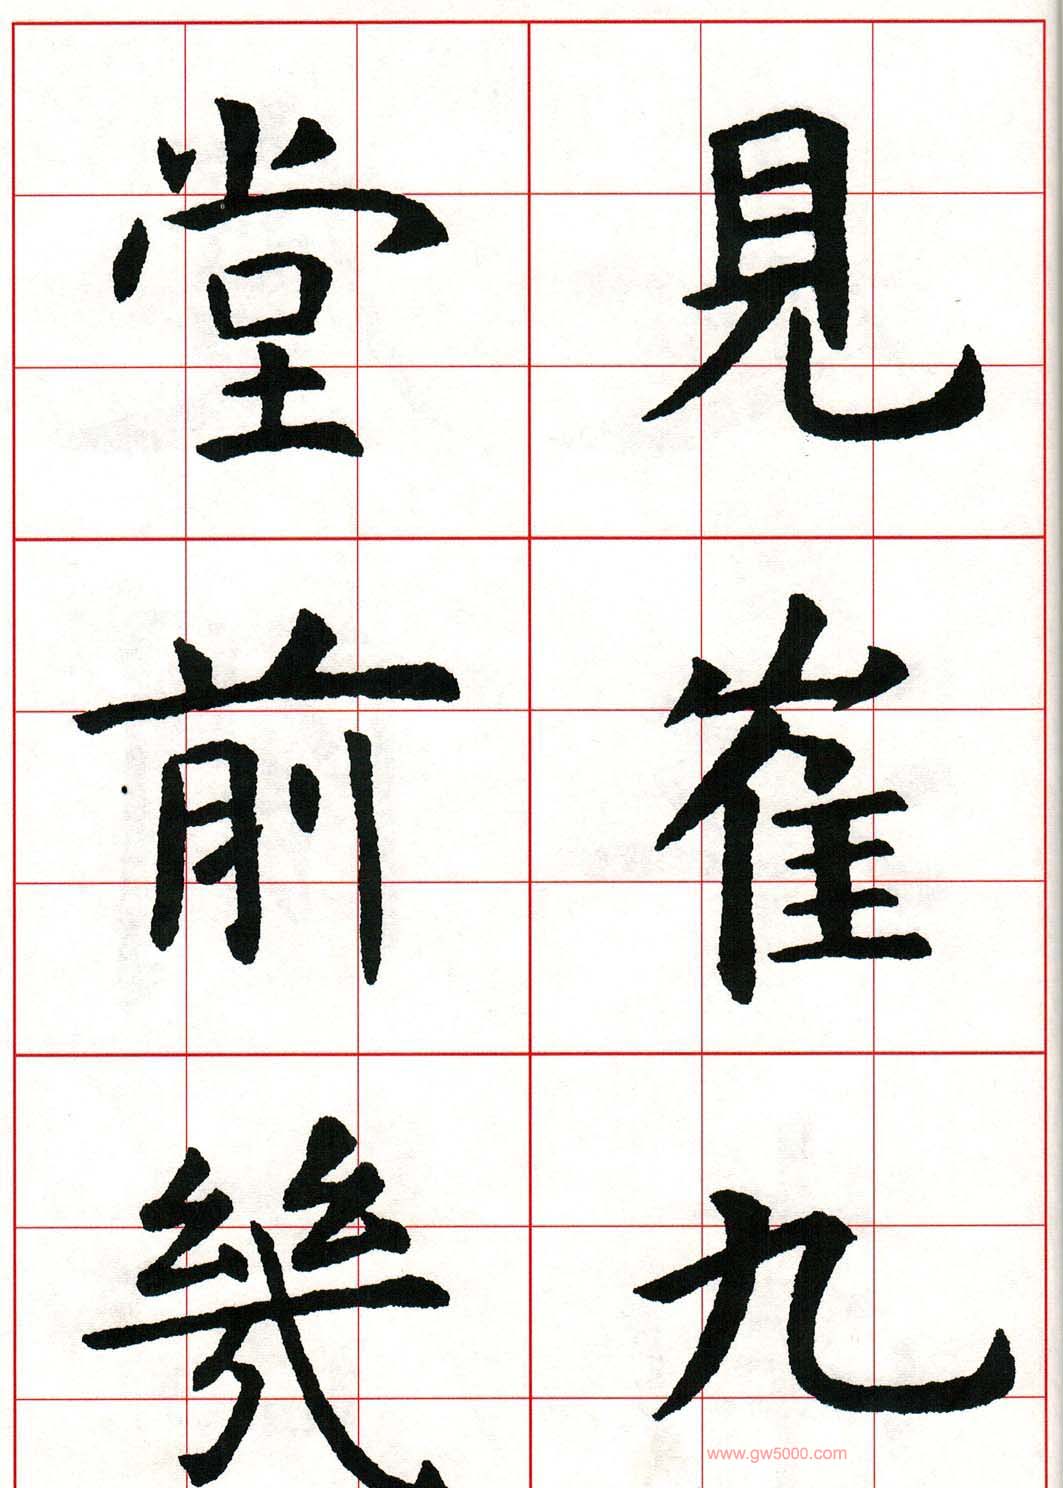 見崔九
堂前幾
www.gw5000.com